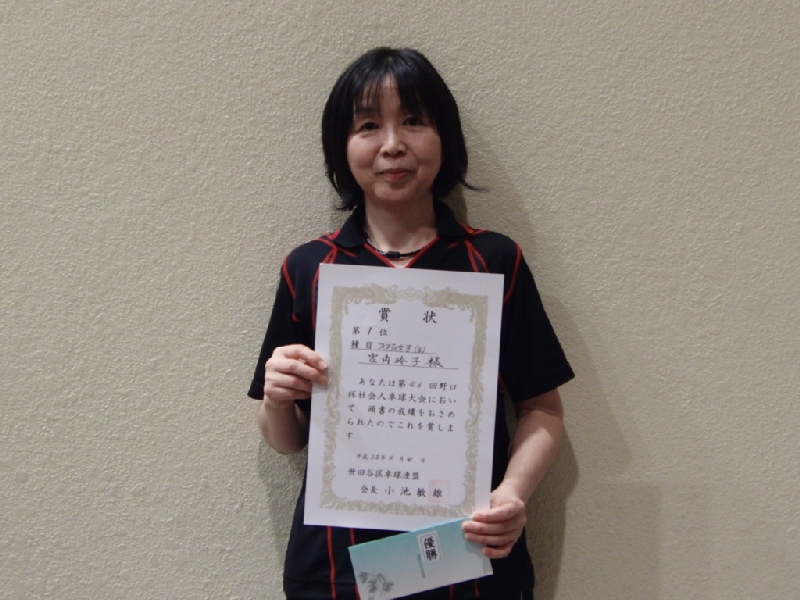 賞状
第1位
種目
宮内玲子様
あなたは第 回野口
杯社会人卓球大会におい
て 頭書の成績をおさめ
られたのでこれを賞しま
す
平成23年 月 日
世田谷区卓球連盟
会長 小池敏雄
優勝